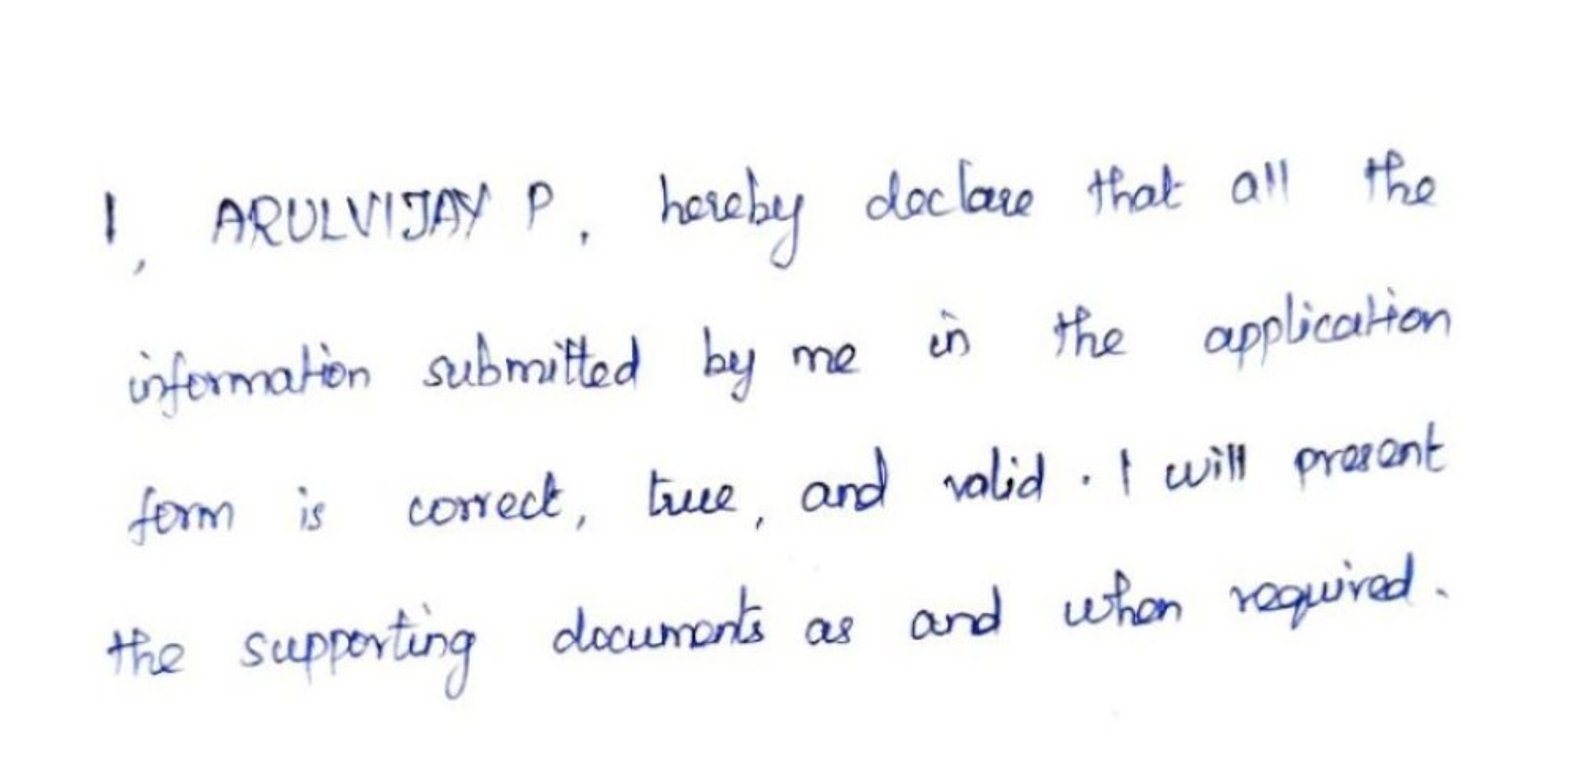 I, ARULVIJAY P, hereby declare that all the
information submitted by me in the application
form is correct, true, and valid. I will present
the supporting documents as and when required.